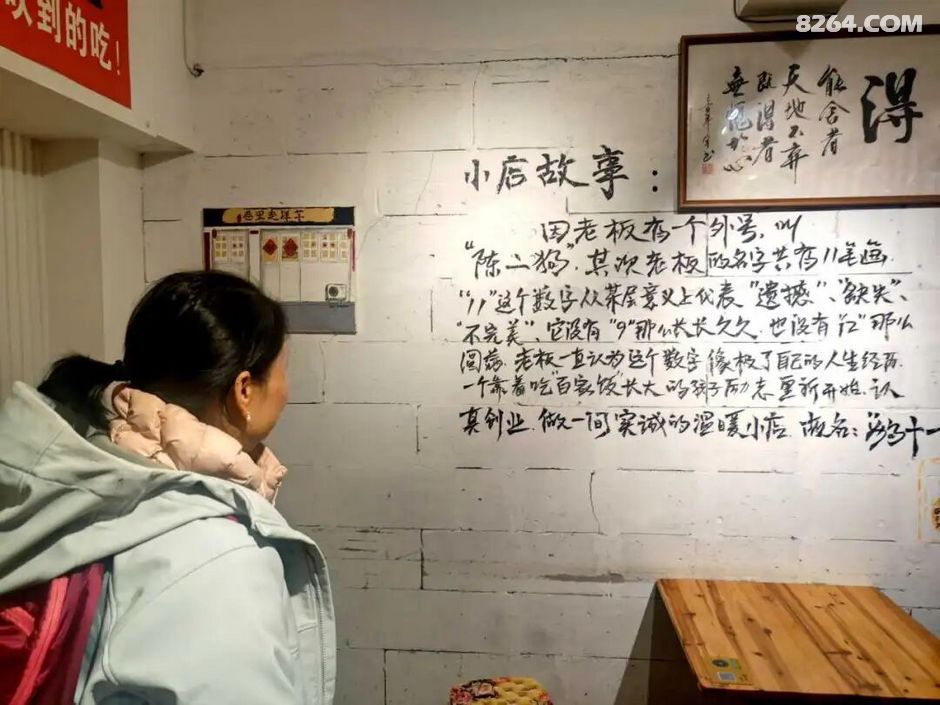 8264.COM
到的吃!
得
能舍者
天地不弃
既得者
無愧於心
小店故事:
因老板有个外号,叫
"陈二狗",其次老板的名字共有11笔画.
"11"这个数字从某层意义上代表"遗憾"、"缺失"、
"不完美"、它没有"9"那么长长久久.也没有"12"那么
圆满.老板一直认为这个数字像极了自己的人生经历.
一个靠着吃"百家饭"长大的孩子励志重新开始.认
真创业.做一间实诚的温暖小店.故名:十一